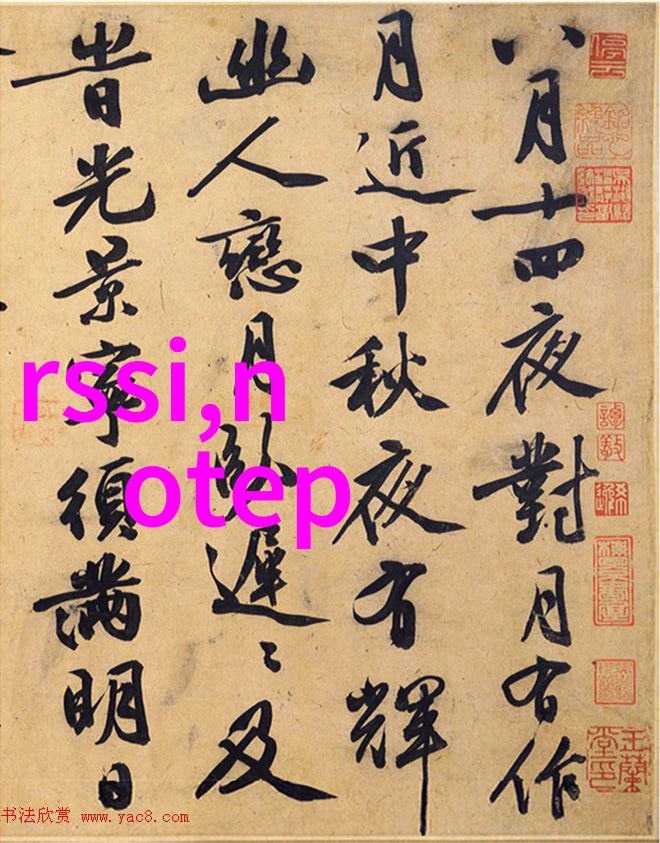 八月十四夜對月有作
月近中秋夜有輝
幽人戀月臥遲〻及
旹光景寧須滿明日
rssi,n
otep
停云
玉蘭堂印
书法欣赏 www.yac8.com